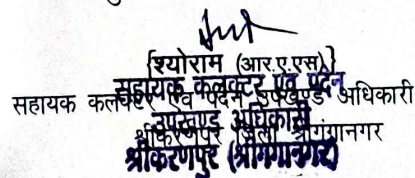 (श्योराम (आर.ए.एस)
सहायक कलक्टर एवं पदेन
सहायक कलक्टर एवं पदेन उपखण्ड अधिकारी
उपखण्ड अधिकारी
श्रीकरणपुर जिला श्रीगंगानगर
श्रीकरणपुर (श्रीगंगानगर)